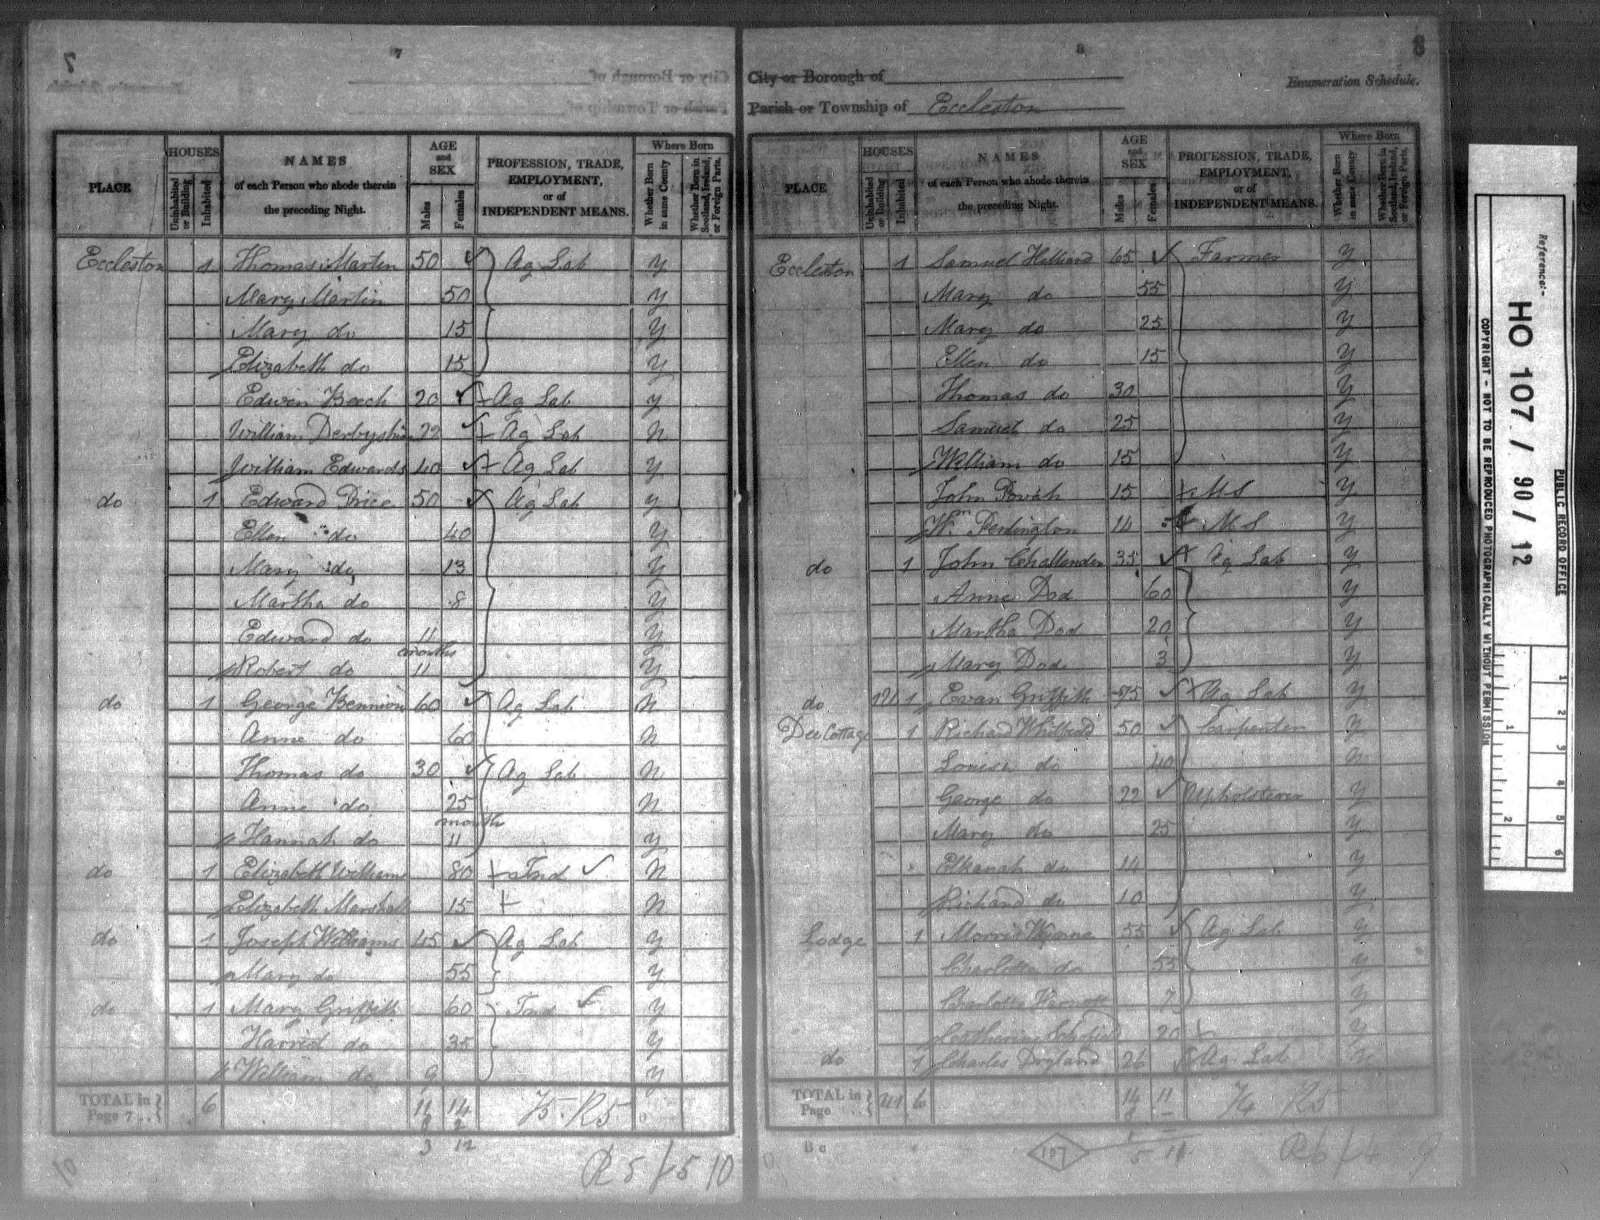 7
7
PLACE
HOUSES
Uninhabited or Building
Inhabited
NAMES
of each Person who abode therein
the preceding Night.
AGE
and
SEX
Males
Females
PROFESSION, TRADE,
EMPLOYMENT,
or of
INDEPENDENT MEANS.
Where Born
Whether Born in same County
Whether Born in Scotland, Ireland, or Foreign Parts.
Eccleston 1 Thomas Martin 50 Ag Lab Y
Mary Martin 50 Y
Mary do 15 Y
Elizabeth do 15 Y
Edwin 20 Ag Lab Y
William Derbyshire Ag Lab N
William Edwards 40 Ag Lab Y
do 1 Edward Price 50 Ag Lab Y
Ellen do 40 Y
Mary do 13 Y
Martha do 8 Y
Edward do 11 Y
months
Robert do 11 Y
do 1 George Bennion 60 Ag Lab N
Anne do 60 N
Thomas do 30 Ag Lab N
Anne do 25 N
month
Hannah do 11 Y
do 1 Elizabeth Williams 80 Ind N
Elizabeth Marshall 15 N
do 1 Joseph Williams 45 Ag Lab Y
Mary do 55 Y
do 1 Mary Griffith 60 Ind Y
Harriet do 35 Y
William do 9 Y
TOTAL in Page 7 6 11 14
3 12
8
8
City or Borough of
Parish or Township of Eccleston
Enumeration Schedule.
PLACE
HOUSES
Uninhabited or Building
Inhabited
NAMES
of each Person who abode therein
the preceding Night.
AGE
and
SEX
Males
Females
PROFESSION, TRADE,
EMPLOYMENT,
or of
INDEPENDENT MEANS.
Where Born
Whether Born in same County
Whether Born in Scotland, Ireland, or Foreign Parts.
Eccleston 1 Samuel 65 Farmer Y
Mary do 55 Y
Mary do 25 Y
Ellen do 15 Y
Thomas do 30 Y
Samuel do 25 Y
William do 15 Y
John Povah 15 M S Y
Wm 14 M S Y
do 1 John 35 Ag Lab Y
Anne Dod 60 Y
Martha Dod 20 Y
Mary Dod 3 Y
do 1 Evan Griffith 75 Ag Lab Y
Dee Cottage 1 Richard 50 Carpenter Y
Louisa do 40 N
George do 22 Upholsterer Y
Mary do 25 Y
Elkanah do 14 Y
Richard do 10 Y
Lodge 1 Morris 55 Ag Lab Y
Charlotte do 55 Y
Charlotte 7 Y
Catharine 20 Y
do 1 Charles 26 Ag Lab
TOTAL in Page 6 14 11
B c
107
Reference:-
HO 107 / 90 / 12
PUBLIC RECORD OFFICE
COPYRIGHT - NOT TO BE REPRODUCED PHOTOGRAPHICALLY WITHOUT PERMISSION
1
2
1
2
3
4
5
6